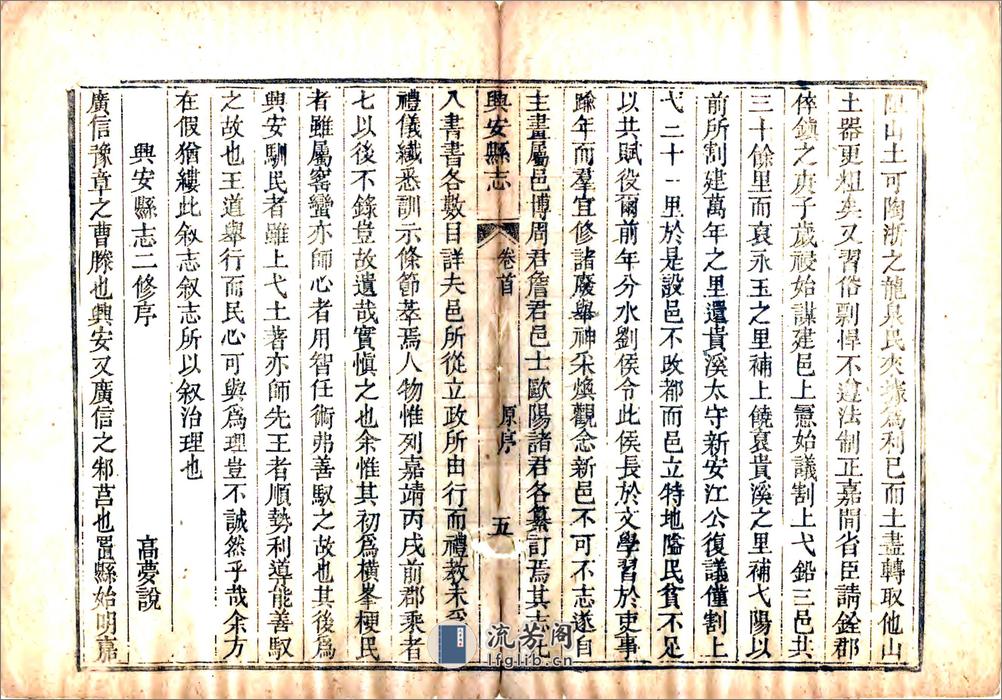 山土可陶浙之龍泉民來據為利已而土盡轉取他山
土器更粗矣又習俗剽悍不遵法制正嘉間省臣請銓郡
倅鎮之庚子歲祲始謀建邑上憲始議割上弋鉛三邑共
三十餘里而裒永玉之里補上饒裒貴溪之里補弋陽以
前所割建萬年之里還貴溪太守新安江公復議僅割上
弋二十一里於是設邑不改都而邑立特地隘民貧不足
以共賦役爾前年分水劉侯令此侯長於文學習於吏事
踰年而羣宜修諸廢舉神采煥觀念新邑不可不志遂自
主畫屬邑博周君詹君邑士歐陽諸君各纂訂焉其志凡
興安縣志 卷首 原序 五
八書書各數目詳夫邑所從立政所由行而禮教未
禮儀纖悉訓示條節萃焉人物惟列嘉靖丙戌前郡乘者
七以後不錄豈故遺哉實慎之也余惟其初為橫峯梗民
者雖屬窑蠻亦師心者用智任術弗善馭之故也其後為
興安馴民者雖上弋土著亦師先王者順勢利導能善馭
之故也王道舉行而民心可與為理豈不誠然乎哉余方
在假猶縷此叙志叙志所以叙治理也
興安縣志二修序 高夢說
廣信豫章之曹滕也興安又廣信之邾莒也置縣始明嘉
流芳阁
lfglib.cn